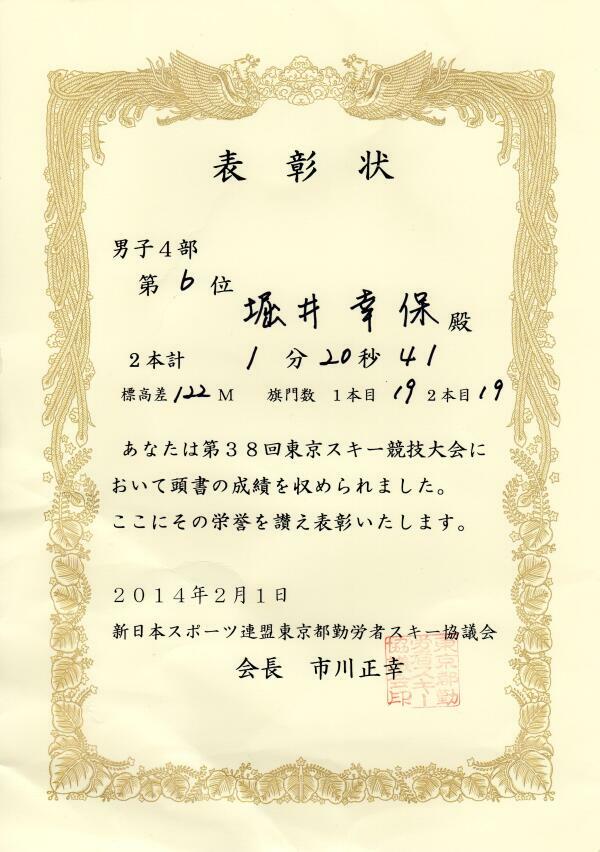 表彰状
男子4部
第6位
堀井幸保殿
2本計 1分20秒41
標高差122M 旗門数 1本目19 2本目19
あなたは第38回東京スキー競技大会に
おいて頭書の成績を収められました。
ここにその栄誉を讃え表彰いたします。
2014年2月1日
新日本スポーツ連盟東京都勤労者スキー協議会
会長 市川正幸
東京都勤
労者スキー
協議会印